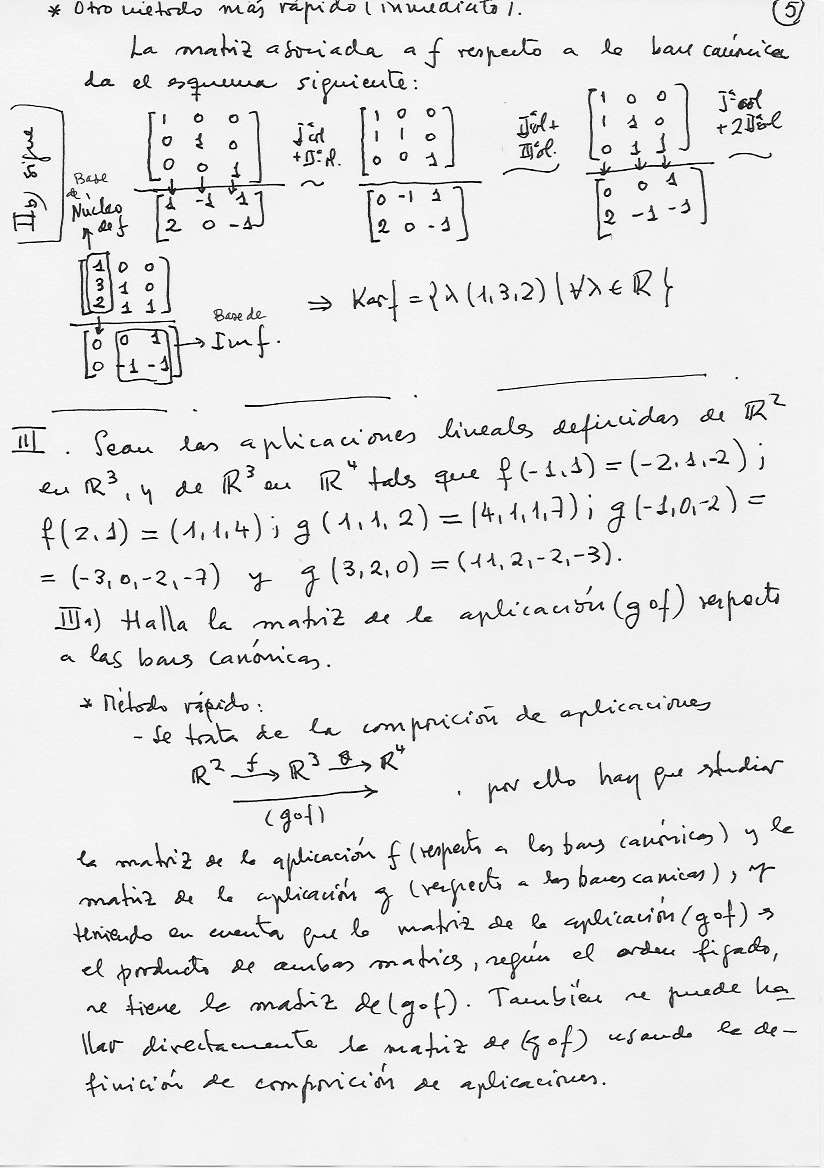 * Otro método más rápido (inmediato). (5)
La matriz asociada a f respecto a la base canónica
da el esquema siguiente:
II b) sigue
[1 0 0
0 1 0
0 0 1]
[1 -1 1
2 0 -1]
Iª col
+ IIª col.
~
[1 0 0
1 1 0
0 0 1]
[0 -1 1
2 0 -1]
IIªcol +
IIIªcol.
~
[1 0 0
1 1 0
0 1 1]
[0 0 1
2 -1 -1]
Iªcol
+ 2IIªcol
~
Base
de
Núcleo
de f
[1 0 0
3 1 0
2 1 1]
[0 0 1
0 -1 -1]
Base de
Im f.
⇒ Ker f = {λ(1,3,2) | ∀λ ∈ ℝ}
III. Sean las aplicaciones lineales definidas de ℝ²
en ℝ³, y de ℝ³ en ℝ⁴ tales que f(-1,1) = (-2,1,-2);
f(2,1) = (1,1,4); g(1,1,2) = (4,1,1,7); g(-1,0,-2) =
= (-3,0,-2,-7) y g(3,2,0) = (11,2,-2,-3).
III 1) Halla la matriz de la aplicación (g∘f) respecto
a las bases canónicas.
* Método rápido:
- Se trata de la composición de aplicaciones
ℝ² f→ ℝ³ g→ ℝ⁴
(g∘f)
. por ello hay que studiar
la matriz de la aplicación f (respecto a las bases canónicas) y la
matriz de la aplicación g (respecto a las bases canicas), y
teniendo en cuenta que la matriz de la aplicación (g∘f) es
el producto de ambas matrices, según el orden figado,
se tiene la matriz de (g∘f). También se puede ha
llar directamente la matriz de (g∘f) usando la de-
finición de composición de aplicaciones.